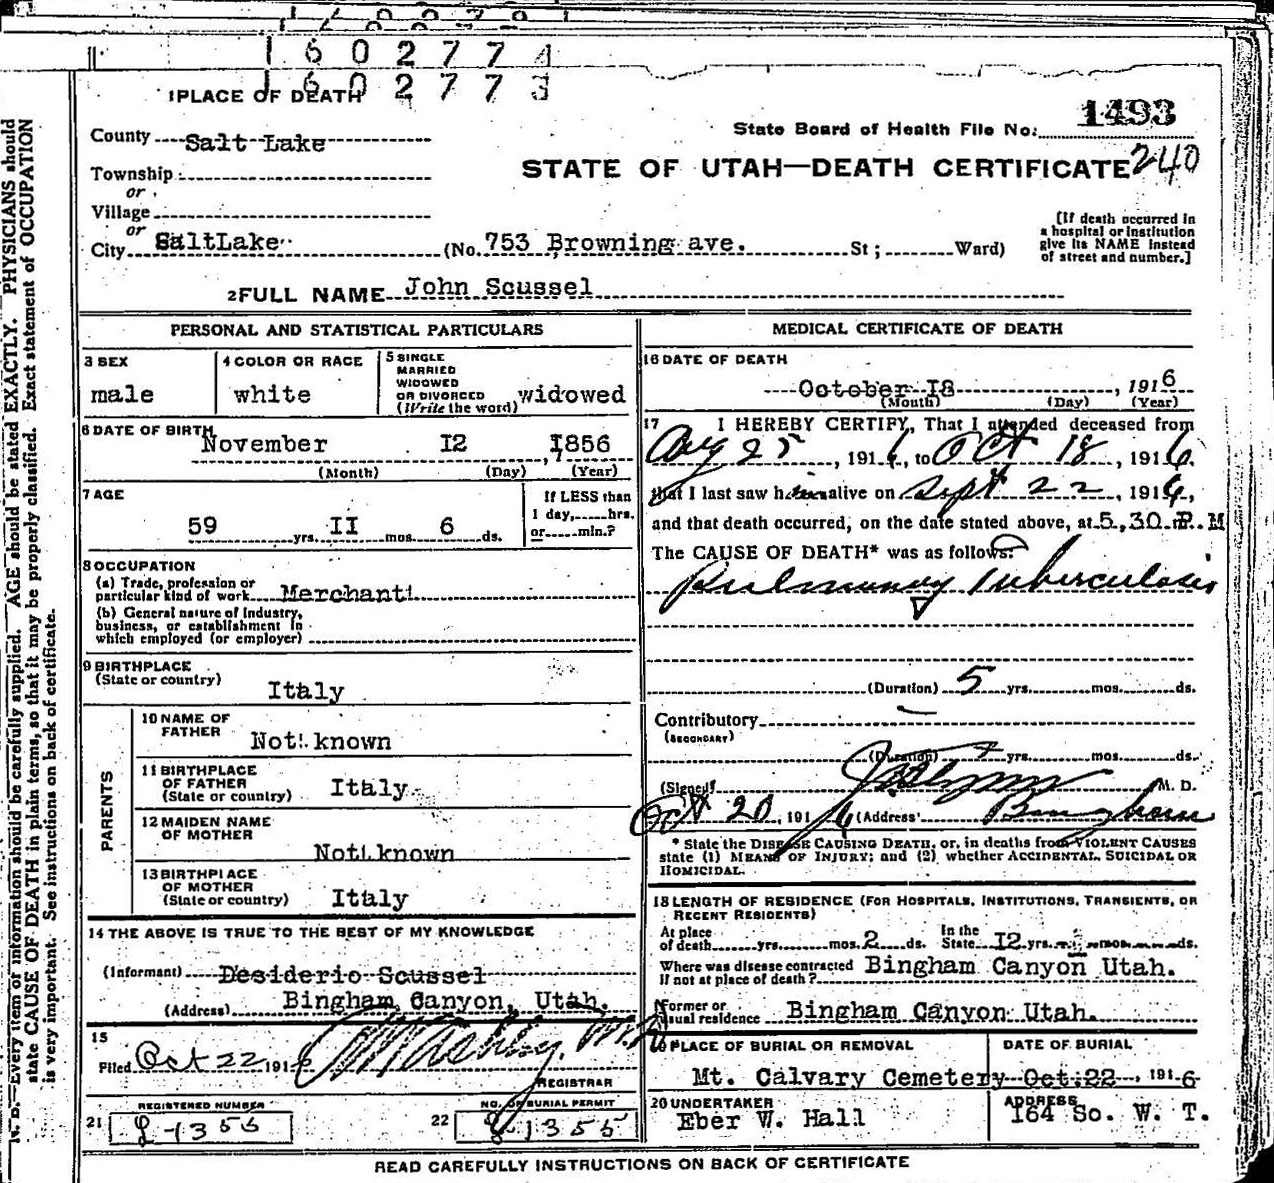 1602774
1602773
1 PLACE OF DEATH
1493
State Board of Health File No.
County Salt Lake
STATE OF UTAH—DEATH CERTIFICATE 240
Township
or
Village
or
City SaltLake (No. 753 Browning ave. St; Ward)
[If death occurred in a hospital or institution give its NAME instead of street and number.]
2 FULL NAME John Scussel
PERSONAL AND STATISTICAL PARTICULARS
3 SEX
male
4 COLOR OR RACE
white
5 SINGLE
MARRIED
WIDOWED
OR DIVORCED
(Write the word) widowed
6 DATE OF BIRTH
November I2, I856
(Month) (Day) (Year)
7 AGE
59 yrs. II mos. 6 ds.
If LESS than
1 day, hrs.
or min.?
8 OCCUPATION
(a) Trade, profession or
particular kind of work Merchant
(b) General nature of industry,
business, or establishment in
which employed (or employer)
9 BIRTHPLACE
(State or country)
Italy
PARENTS
10 NAME OF
FATHER
Not known
11 BIRTHPLACE
OF FATHER
(State or country) Italy
12 MAIDEN NAME
OF MOTHER
Not known
13 BIRTHPLACE
OF MOTHER
(State or country) Italy
14 THE ABOVE IS TRUE TO THE BEST OF MY KNOWLEDGE
(Informant) Desiderio Scussel
(Address) Bingham Canyon, Utah.
15
Filed Oct 22 1916
REGISTRAR
21 REGISTERED NUMBER
1355
22 NO. OF BURIAL PERMIT
1355
MEDICAL CERTIFICATE OF DEATH
16 DATE OF DEATH
October I8, 1916
(Month) (Day) (Year)
17 I HEREBY CERTIFY, That I attended deceased from
Aug 25, 1916, to Oct 18, 1916,
that I last saw him alive on Sept 22, 1916,
and that death occurred, on the date stated above, at 5,30 P.M
The CAUSE OF DEATH* was as follows:
Pulmonary Tuberculosis
(Duration) 5 yrs. mos. ds.
Contributory
(SECONDARY)
(Duration) yrs. mos. ds.
(Signed) M. D.
Oct 20, 1916 (Address) Bingham
* State the DISEASE CAUSING DEATH, or, in deaths from VIOLENT CAUSES
state (1) MEANS OF INJURY; and (2) whether ACCIDENTAL, SUICIDAL OR
HOMICIDAL.
18 LENGTH OF RESIDENCE (FOR HOSPITALS, INSTITUTIONS, TRANSIENTS, OR
RECENT RESIDENTS)
At place
of death yrs. mos. 2 ds. In the
State I2 yrs. mos. ds.
Where was disease contracted
If not at place of death? Bingham Canyon Utah.
Former or
usual residence Bingham Canyon Utah.
19 PLACE OF BURIAL OR REMOVAL
Mt. Calvary Cemetery
DATE OF BURIAL
Oct. 22, 1916
20 UNDERTAKER
Eber W. Hall
ADDRESS
164 So. W. T.
READ CAREFULLY INSTRUCTIONS ON BACK OF CERTIFICATE
N. B.—Every item of information should be carefully supplied. AGE should be stated EXACTLY. PHYSICIANS should
state CAUSE OF DEATH in plain terms, so that it may be properly classified. Exact statement of OCCUPATION
is very important. See instructions on back of certificate.